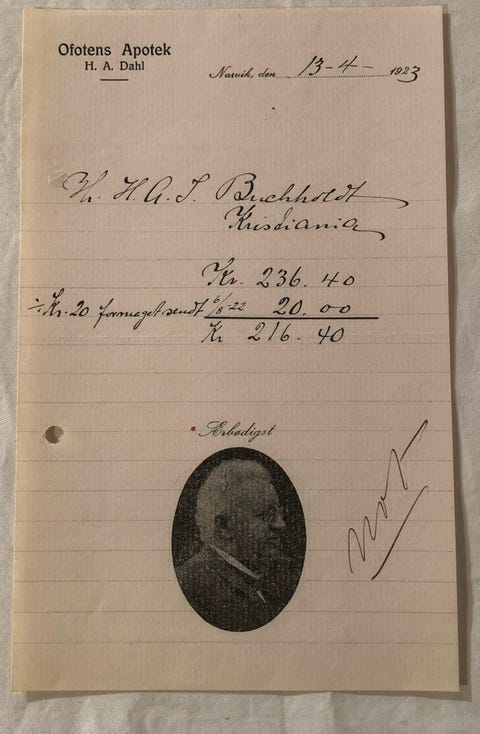 Ofotens Apotek
H. A. Dahl
Narvik, den 13-4- 1923
Hr. H. A. J. Buchholdt
Kristiania
Kr. 236. 40
÷ Kr. 20 formeget sendt 6/8-22 20. 00
Kr 216. 40
Ærbødigst
not